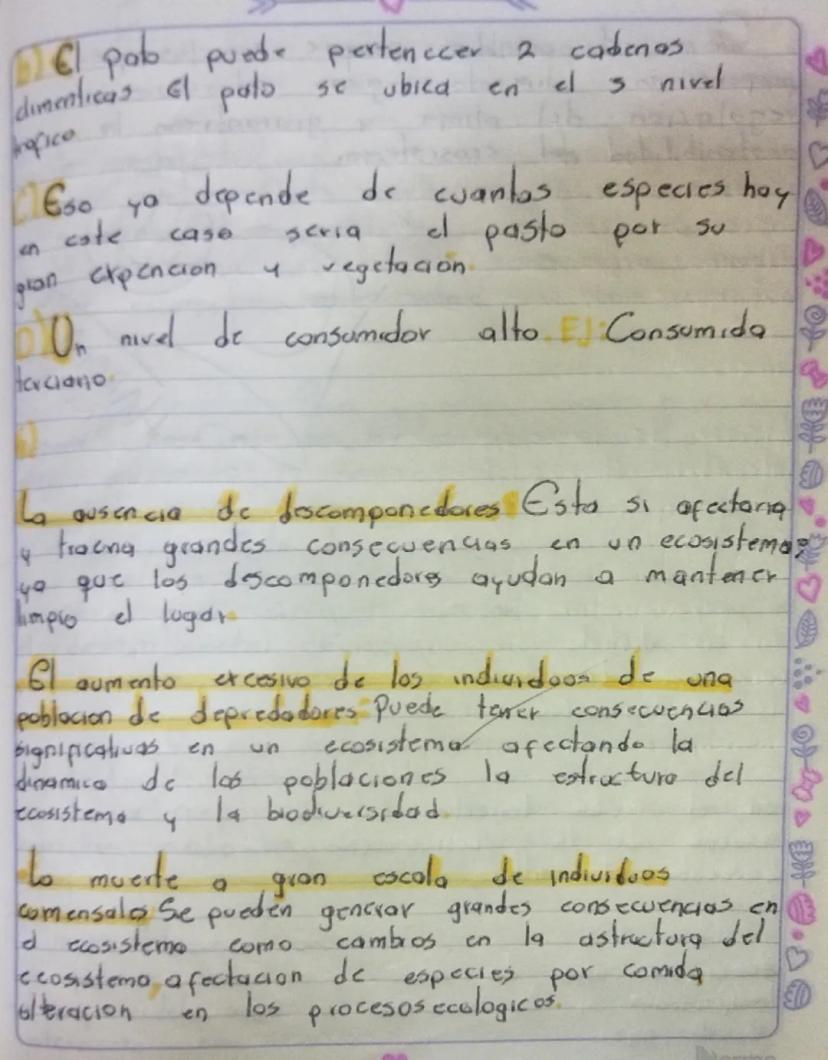 b) El pato puede pertenccer 2 cadenas
alimenticas El pato se ubica en el 3 nivel
trofico
C) Eso ya depende de cuantas especies hay
en este caso seria el pasto por su
gran expencion y vegetación.
D) Un nivel de consumidor alto. EJ: Consumida
terciario.
La ausencia de descomponedores: Esta si afectaria
y traeria grandes consecuencias en un ecosistema,
ya que los descomponedores ayudan a mantener
limpio el lugar.
El aumento excesivo de los individuos de una
poblacion de depredadores: Puede tener consecuencias
significativas en un ecosistema afectando la
dinamica de las poblaciones la estructura del
ecosistema y la biodiversidad.
La muerte a gran escala de individuos
comensales Se pueden generar grandes consecuencias en
el ecosistema como cambios en la astructura del
ecosistema, afectacion de especies por comida
alteracion en los procesos ecologicos.